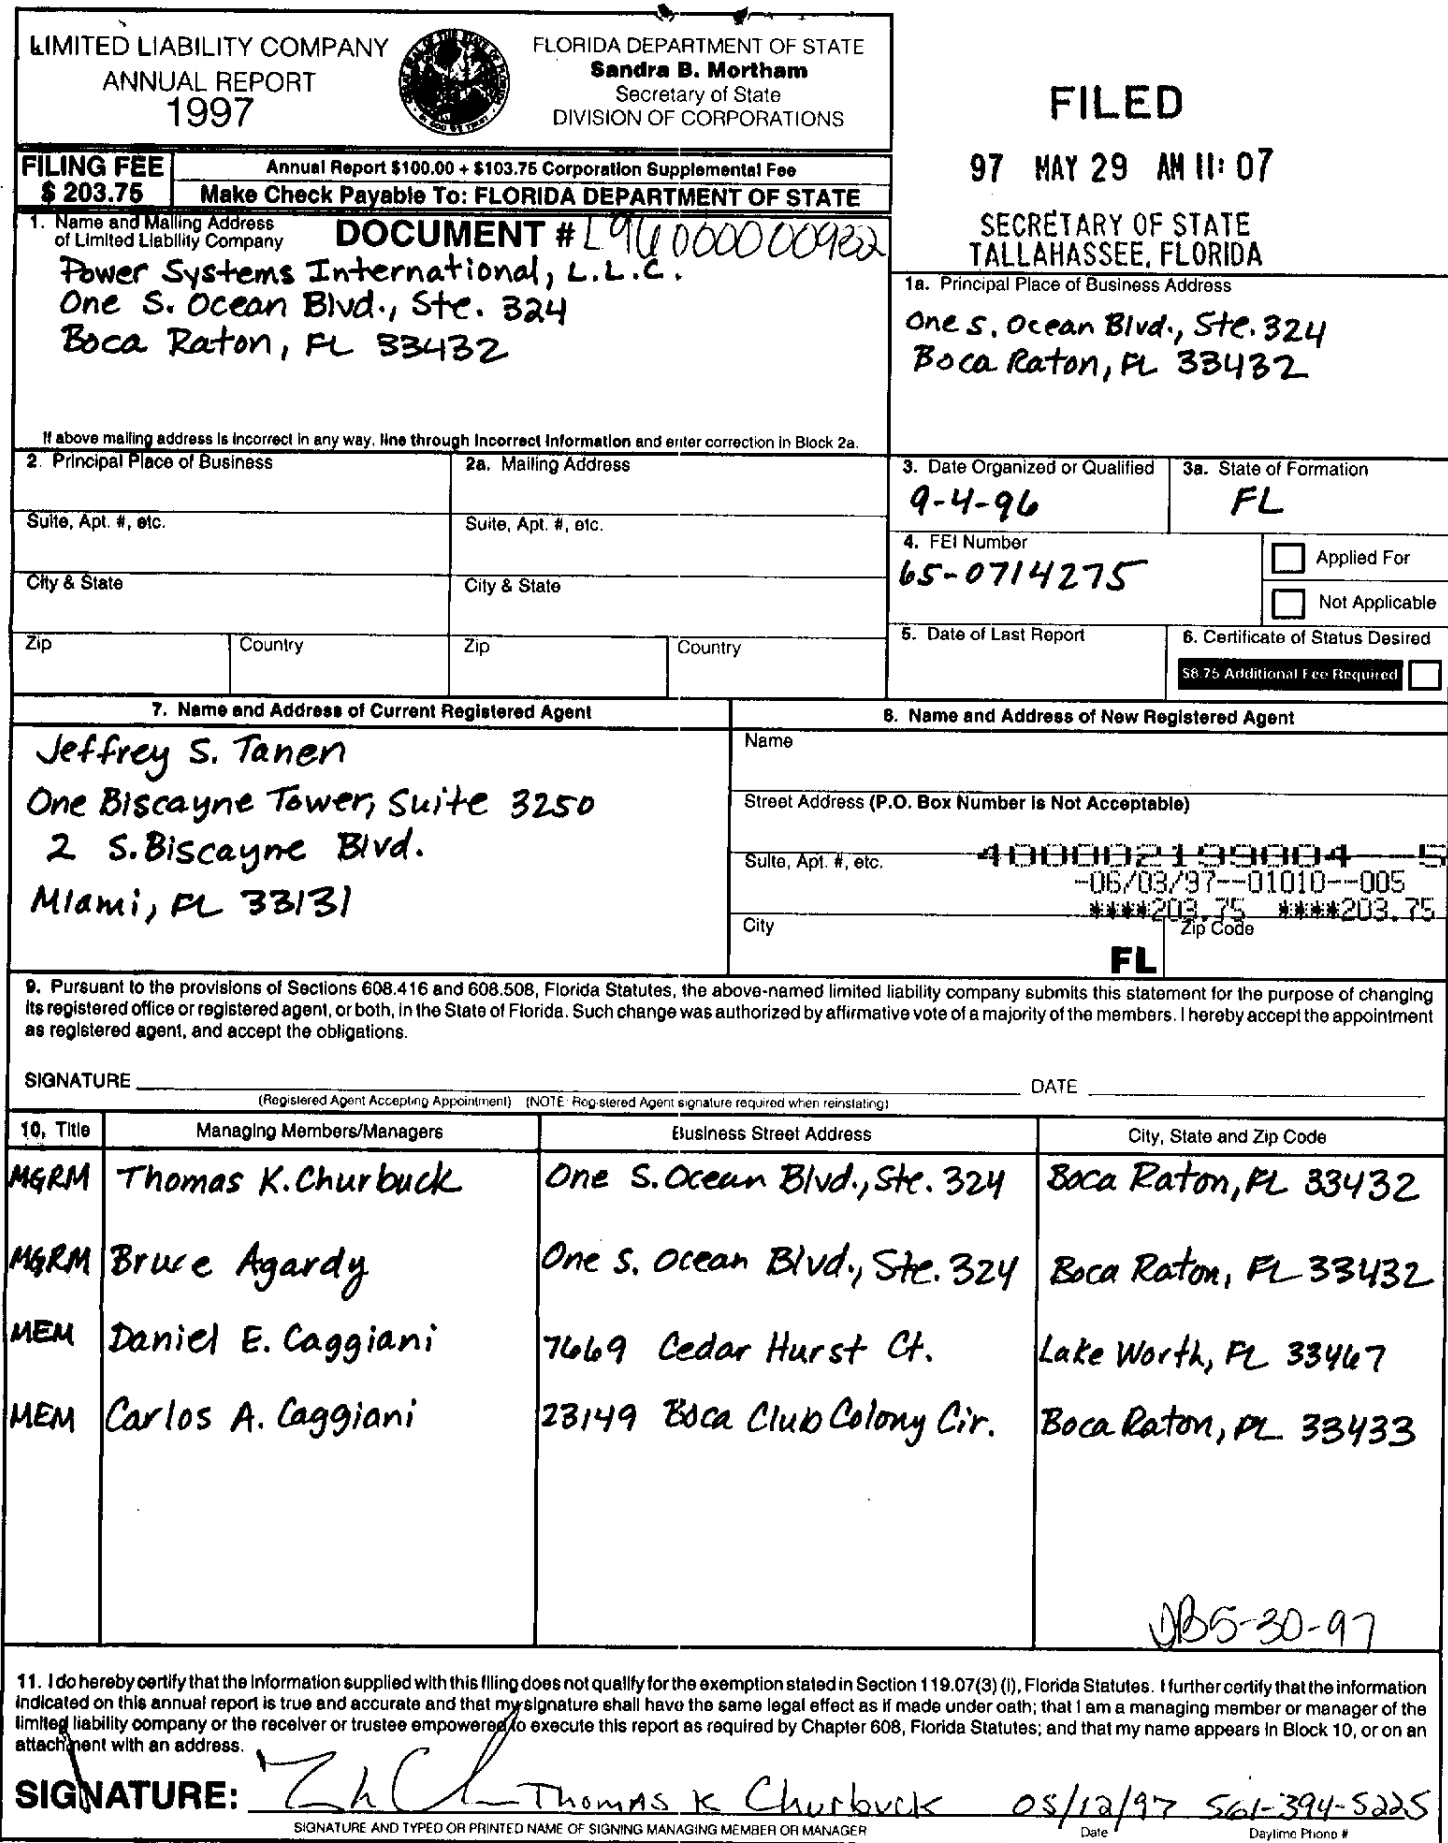 LIMITED LIABILITY COMPANY
ANNUAL REPORT
1997
FLORIDA DEPARTMENT OF STATE
Sandra B. Mortham
Secretary of State
DIVISION OF CORPORATIONS
FILED
97 MAY 29 AM 11:07
SECRETARY OF STATE
TALLAHASSEE, FLORIDA
FILING FEE
$ 203.75
Annual Report $100.00 + $103.75 Corporation Supplemental Fee
Make Check Payable To: FLORIDA DEPARTMENT OF STATE
1. Name and Mailing Address
of Limited Liability Company
DOCUMENT # L96000000982
Power Systems International, L.L.C.
One S. Ocean Blvd., Ste. 324
Boca Raton, FL 33432
If above mailing address is incorrect in any way, line through incorrect information and enter correction in Block 2a.
1a. Principal Place of Business Address
One S. Ocean Blvd., Ste. 324
Boca Raton, FL 33432
2. Principal Place of Business
2a. Mailing Address
Suite, Apt. #, etc.
Suite, Apt. #, etc.
City & State
City & State
Zip
Country
Zip
Country
3. Date Organized or Qualified
9-4-96
3a. State of Formation
FL
4. FEI Number
65-0714275
Applied For
Not Applicable
5. Date of Last Report
6. Certificate of Status Desired
$8.75 Additional Fee Required
7. Name and Address of Current Registered Agent
Jeffrey S. Tanen
One Biscayne Tower, Suite 3250
2 S. Biscayne Blvd.
Miami, FL 33131
8. Name and Address of New Registered Agent
Name
Street Address (P.O. Box Number is Not Acceptable)
Suite, Apt. #, etc.
400002199004--5
-06/03/97--01010--005
****203.75 ****203.75
City
FL
Zip Code
9. Pursuant to the provisions of Sections 608.416 and 608.508, Florida Statutes, the above-named limited liability company submits this statement for the purpose of changing
its registered office or registered agent, or both, in the State of Florida. Such change was authorized by affirmative vote of a majority of the members. I hereby accept the appointment
as registered agent, and accept the obligations.
SIGNATURE
DATE
(Registered Agent Accepting Appointment) (NOTE: Registered Agent signature required when reinstating)
10. Title Managing Members/Managers Business Street Address City, State and Zip Code
MGRM Thomas K. Churbuck One S. Ocean Blvd., Ste. 324 Boca Raton, FL 33432
MGRM Bruce Agardy One S. Ocean Blvd., Ste. 324 Boca Raton, FL 33432
MEM Daniel E. Caggiani 7669 Cedar Hurst Ct. Lake Worth, FL 33467
MEM Carlos A. Caggiani 23149 Boca Club Colony Cir. Boca Raton, FL 33433
5-30-97
11. I do hereby certify that the information supplied with this filing does not qualify for the exemption stated in Section 119.07(3)(i), Florida Statutes. I further certify that the information
indicated on this annual report is true and accurate and that my signature shall have the same legal effect as if made under oath; that I am a managing member or manager of the
limited liability company or the receiver or trustee empowered to execute this report as required by Chapter 608, Florida Statutes; and that my name appears in Block 10, or on an
attachment with an address.
SIGNATURE: Thomas K Churbuck 05/12/97 561-394-5225
SIGNATURE AND TYPED OR PRINTED NAME OF SIGNING MANAGING MEMBER OR MANAGER
Date
Daytime Phone #